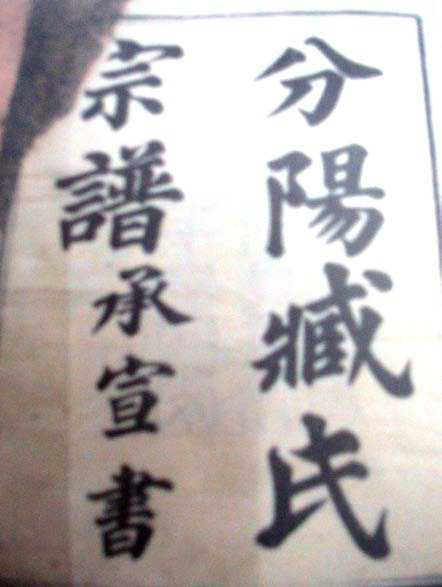 分陽臧氏
宗譜承宣書